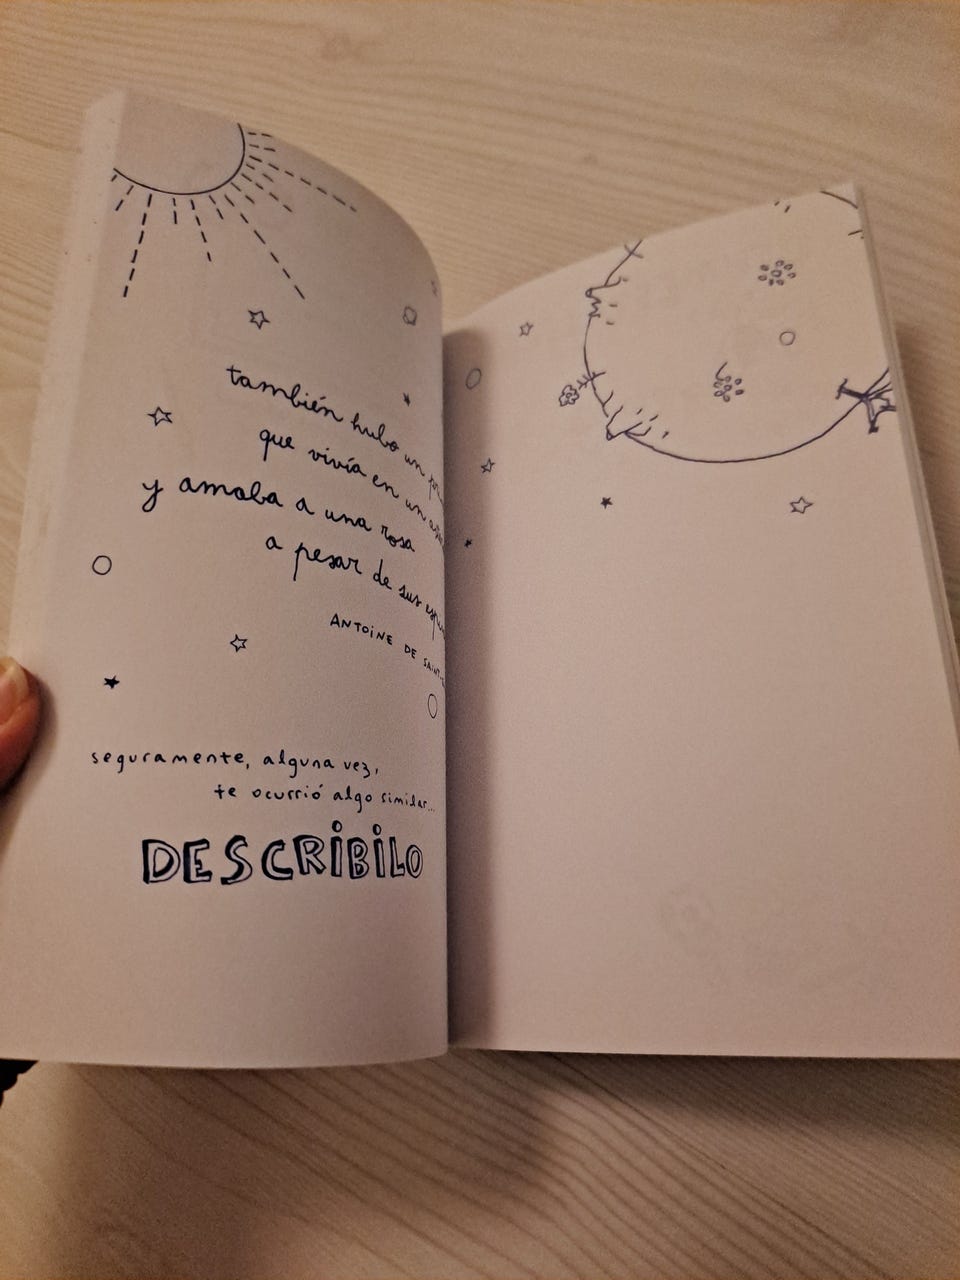 también hubo un
que vivía en un
y amaba a una rosa
a pesar de sus
ANTOINE DE SAINT-
seguramente, alguna vez,
te ocurrió algo similar...
DESCRIBILO